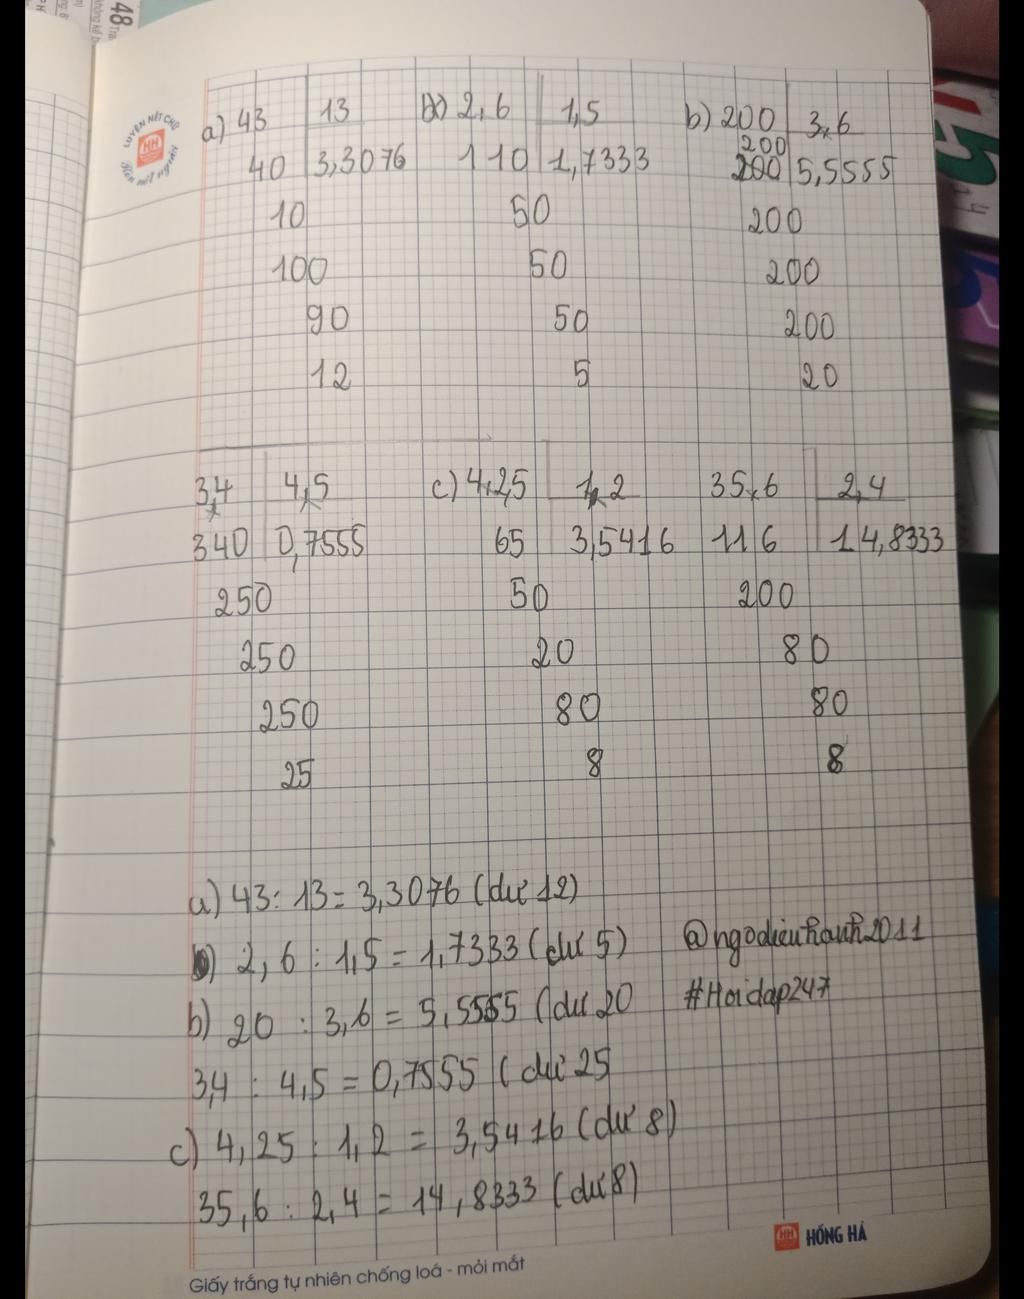 48
LUYỆN NÉT CHỮ
HH
Rèn nết người
a) 43 13 b) 2,6 1,5 b) 200 3,6
200
40 3,3076 110 1,7333 200 5,5555
10 50 200
100 50 200
90 50 200
12 5 20
3,4 4,5 c) 4,25 1,2 35,6 2,4
340 0,7555 65 3,5416 116 14,8333
250 50 200
250 20 80
250 80 80
25 8 8
a) 43 : 13 = 3,3076 (dư 12)
b) 2,6 : 1,5 = 1,7333 (dư 5) @ngodieuhanh2011
b) 20 : 3,6 = 5,5555 (dư 20 #Hoidap247
3,4 : 4,5 = 0,7555 (dư 25
c) 4,25 : 1,2 = 3,5416 (dư 8)
35,6 : 2,4 = 14,8333 (dư 8)
HH HỒNG HÀ
Giấy trắng tự nhiên chống loá - mỏi mắt